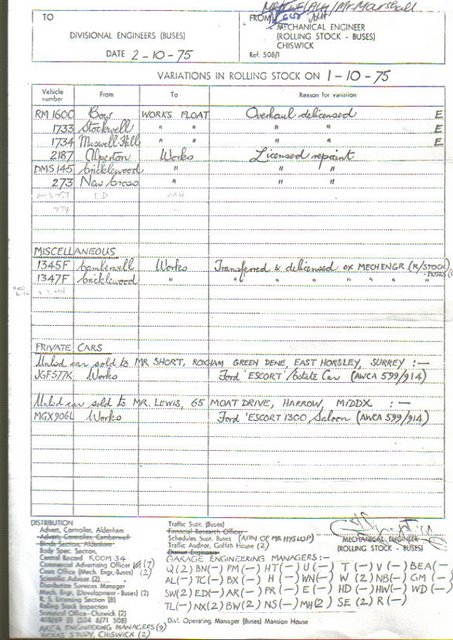 TO
DIVISIONAL ENGINEERS (BUSES)
DATE 2-10-75
Mr Marshall
FROM
MECHANICAL ENGINEER
(ROLLING STOCK - BUSES)
CHISWICK
Ref. 508/1
VARIATIONS IN ROLLING STOCK ON 1-10-75
Vehicle number From To Reason for variation
RM 1600 Bow WORKS FLOAT Overhaul delicensed E
1733 Stockwell " " " " E
1734 Muswell Hill " " " " E
2187 Alperton Works Licensed repaint
DMS 145 Cricklewood " " "
273 New Cross " " "
MISCELLANEOUS
1345F Camberwell Works Transferred & delicensed ex MECH ENGR (R/STOCK)
1347F Cricklewood " " " " " " "
PRIVATE CARS
Unlicd car sold to MR SHORT, ROXHAM GREEN DENE, EAST HORSLEY, SURREY :—
JGF577K Works Ford 'ESCORT' Estate Car (AWCA 599/914)
Unlicd car sold to MR. LEWIS, 65 MOAT DRIVE, HARROW, MIDDX. :—
MGX906L Works Ford 'ESCORT 1300' Saloon (AWCA 599/914)
DISTRIBUTION
Advert. Controller, Aldenham
Advert. Controller, Camberwell
Body Spec. Section,
Central Record ROOM 34
Commercial Advertising Officer
Costs Office (Mech. Eng. - Buses) (2)
Scientific Adviser (2)
Distribution Services Manager
Mech. Engr. (Development - Buses) (2)
R. S. Licensing Section (8)
Rolling Stock Inspection
Statistical Office - Chiswick (2)
AREA ENGINEERING MANAGERS (9)
WORKS STUDY, CHISWICK (2)
Traffic Supt. (Buses)
Financial Research Officer
Schedules Supt. Buses (ATTN OF MR HYSLOP)
Traffic Auditor, Griffith House (2)
GARAGE ENGINEERING MANAGERS :—
Q (2) BN(—) PM(—) HT(—) U(—) T(—) V(—) BEA(—)
AL(—) TC(—) BX(—) H(—) WN(—) W(2) NB(—) GM(—)
SW(2) ED(—) AR(—) PR(—) E(—) HD(—) HW(—) WD(—)
TL(—) NX(2) BW(2) NS(—) MH(2) SE(2) R(—)
Dist. Operating Manager (Buses) Mansion House
MECHANICAL ENGINEER
(ROLLING STOCK - BUSES)